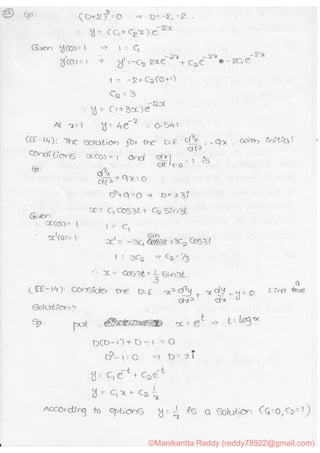 (22) Sol: (D+2)²=0 → D=-2,-2.
∴ y = (C₁+C₂x)e^-2x
Given y(0)=1 → 1 = C₁
y'(0)=1 → y'=-C₂ 2xe^-2x + C₂e^-2x - 2C₁e^-2x
1 = -2+C₂(0+1)
C₂ = 3
∴ y = (1+3x)e^-2x
At x=1 y = 4e^-2 = 0.541
(EE-14): The solution for the D.E d²x/dt² = -9x, with initial
conditions x(0)=1 and dx/dt|t=0 = 1 is
Sol: d²x/dt² + 9x=0
D²+9=0 → D=±3i
x = C₁cos3t + C₂ sin3t
Given
x(0)=1 1 = C₁
x'(0)=1 x' = -3C₁ sin3t+3C₂cos3t
1 = 3C₂ → C₂=1/3
∴ x = cos3t+1/3 sin3t
(EE-14): Consider the D.E. x² d²y/dx² + x dy/dx - y=0. Find the a
solution?
Sol: put x=e^t → t=logx
D(D-1)+D-1 = 0
D²-1=0 → D=±1
y = C₁e^t + C₂e^-t
y = C₁x + C₂ 1/x
According to options y = 1/x is a solution (C₁=0, C₂=1)
©Manikantta Reddy (reddy78922@gmail.com)